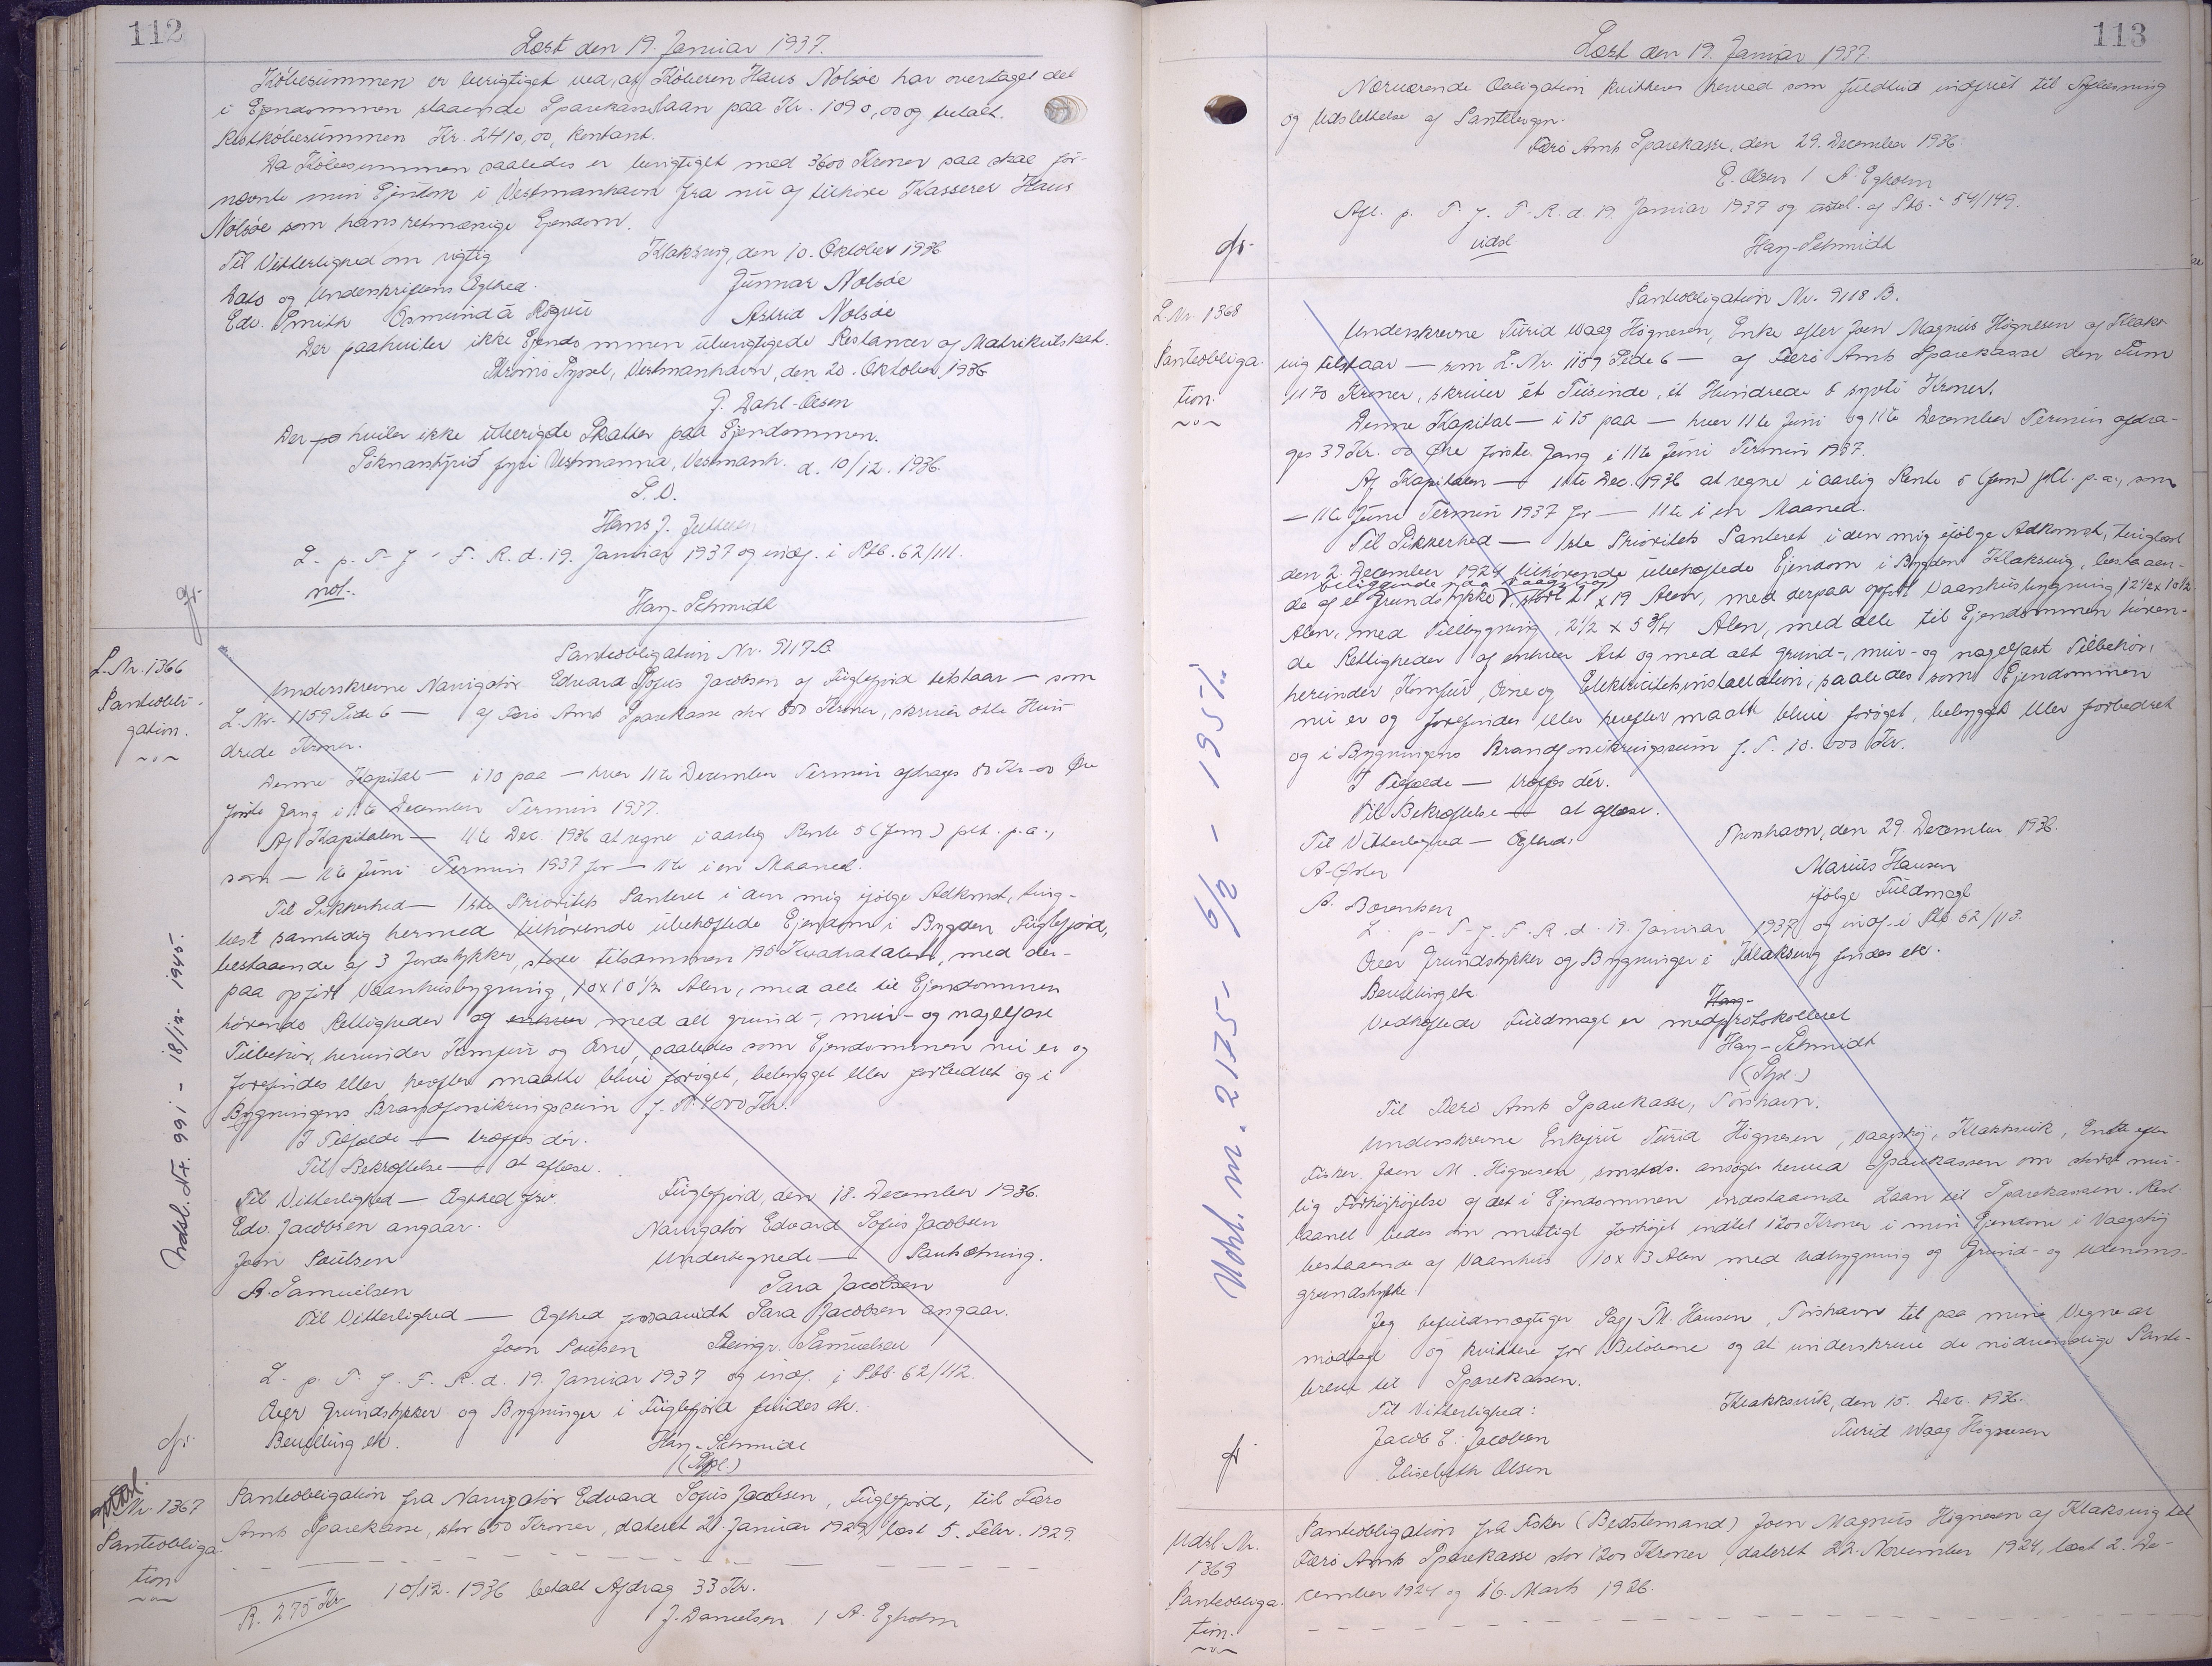 112
Læst den 19. Januar 1937.
Købesummen er berigtiget ved, at Køberen Haus Nolsøe har overtaget det
i Ejendommen staaende Sparekasselaan paa Kr. 1090,00 og betalt.
Restkøbesummen Kr. 2410,00, kontant.
Da Købesummen saaledes er berigtiget med 3600 Kroner saa skal før-
nævnte min Ejendom i Vestmanhavn fra nu af tilhøre Kasserer Haus
Nolsøe som hans retmæssige Ejendom.
Til Vitterlighed om rigtig
Klaksvig, den 10. Oktober 1936
Dato og Underskriftens Ægthed.
Gunnar Nolsøe
Edv. Smith Osmund á Rógvu
Astrid Nolsøe
Der paahviler ikke Ejendommen uberigtigede Restancer af Matrikulskat.
Strømø Syssel, Vestmanhavn, den 20. Oktober 1936
J. Dahl-Olsen
Der po hviler ikke uberigde Skatter paa Ejendommen.
Sóknarstýrið fyri Vestmanna, Vestmanh. d. 10/12. 1936.
P.V.
Hans J.
L. p. T. J. F. R. d. 19. Januar 1937 og indf. i Pbb. 62/111.
not.
Hay-Schmidt
L. Nr. 1366
Panteobli-
gation.
Panteobligation Nr. 9117 B
Underskrevne Navigatør Edvard Sofus Jacobsen af Fuglefjord tilstaar — som
L. Nr. 1159 Side 6 — af Færø Amts Sparekasse stor 800 Kroner, skriver otte Hun-
drede Kroner.
Denne Kapital — i 10 paa — hver 11te December Termin afdrages 80 Kr. 00 Øre
første Gang i 11te December Termin 1937.
Af Kapitalen — 11te Dec. 1936 at regne i aarlig Rente 5 (fem) pCt. p.a.,
som — 11te Juni Termin 1937 for — 11te i en Maaned.
Til Sikkerhed — 1ste Prioritets Panteret i den mig ifølge Adkomst, ting-
læst samtidig hermed tilhørende ubehæftede Ejendom i Bygden Fuglefjord,
bestaaende af 3 Jordstykker, store tilsammen 195 Kvadratalen, med der-
paa opført Vaanhusbygning, 10x10½ Alen, med alle til Ejendommen
hørende Rettigheder og enhver med alt grund-, mur- og nagelfast
Tilbehør, herunder Komfur og Ovne, saaledes som Ejendommen nu er og
forefindes eller herefter maatte blive forøget, bebygget eller forbedret og i
Bygningens Brandforsikringssum f. T. 4000 Kr.
I Tilfælde — træffes der.
Til Bekræftelse — at aflæse.
Til Vitterlighed — Ægthed for.
Fuglefjord, den 18. December 1936.
Edv. Jacobsen angaar.
Navigatør Edvard Sofus Jacobsen
Joen Poulsen
Undertegnede — Pantsætning.
A. Samuelsen
Sara Jacobsen
Til Vitterlighed — Ægthed forsaavidt Sara Jacobsen angaar.
Joen Poulsen Steingr. Samuelsen
L. p. T. J. F. R. d. 19. Januar 1937 og indf. i Pbb. 62/112.
Over Grundstykker og Bygninger i Fuglefjord findes ek.
Bevilling ek.
Hay-Schmidt
(Stpl.)
Udsl. Nr. 991 - 18/12 - 1945.
Udsl. Nr. 1367
Panteobliga-
tion
Panteobligation fra Navigatør Edvard Sofus Jacobsen, Fuglefjord, til Færø
Amts Sparekasse, stor 650 Kroner, dateret 21. Januar 1929 læst 5. Febr. 1929.
R. 275 Kr.
10/12. 1936 betalt Afdrag 33 Kr.
J. Danielsen / A. Egholm
113
Læst den 19. Januar 1937.
Nærværende Obligation kvitteres herved som fuldtud indfriet til Aflæsning
og Udslettelse af Pantebogen.
Færø Amts Sparekasse, den 29. December 1936.
E. Olsen / A. Egholm
Afl. p. T. J. F. R. d. 19. Januar 1937 og udsl. af Pbb. - 54/149.
udsl.
Hay-Schmidt
L. Nr. 1368
Panteobliga-
tion.
Panteobligation Nr. 9118 B.
Underskrevne Turid Waag Høgnesen, Enke efter Joen Magnus Høgnesen af Klaks-
vig tilstaar — som L. Nr. 1159 Side 6 — af Færø Amts Sparekasse den Sum
1170 Kroner, skriver ét Tusinde, ét Hundrede & syvti Kroner.
Denne Kapital — i 15 paa — hver 11te Juni og 11te December Termin afdra-
ges 39 Kr. 00 Øre første Gang i 11te Juni Termin 1937.
Af Kapitalen — 11te Dec. 1936 at regne i aarlig Rente 5 (fem) pCt. p.a., som
— 11te Juni Termin 1937 for — 11te i en Maaned.
Til Sikkerhed — 1ste Prioritets Panteret i den mig ifølge Adkomst, tinglæst
den 2. December 1924 tilhørende ubehæftede Ejendom i Bygden Klaksvig, bestaaen-
de af et Grundstykke, stort 21 x 19 Alen, med derpaa opført Vaanhusbygning, 12½ x 10½
Alen, med Tilbygning, 2½ x 5¾ Alen, med alle til Ejendommen høren-
de Rettigheder af enhver Art og med alt grund-, mur- og nagelfast Tilbehør,
herunder Komfur, Ovne og Elektricitetsinstallation, saaledes som Ejendommen
nu er og forefindes eller herefter maatte blive forøget, bebygget eller forbedret
og i Bygningens Brandforsikringssum f. T. 10.000 Kr.
I Tilfælde — træffes der.
Til Bekræftelse — at aflæse.
Til Vitterlighed — Ægthed,
Thorshavn, den 29. December 1936.
Marius Hansen
ifølge Fuldmagt
A. Berentsen
L. p. T. J. F. R. d. 19. Januar 1937 og indf. i Pbb 62/113.
Over Grundstykker og Bygninger i Klaksvig findes ek.
Bevilling ek.
Hay-
Vedhæftede Fuldmagt er medprotokolleret
Hay-Schmidt
(Stpl.)
Til Færø Amts Sparekasse, Tórshavn.
Underskrevne Enkefru Turid Høgnesen, Vaagstøj, Klakksvik, Enke efter
Fisker Joen M. Høgnesen, smstds. ansøger herved Sparekassen om størst mu-
lig Forhøjhøjelse af det i Ejendommen indestaaende Laan til Sparekassen. Rest-
laanet bedes om muligt forhøjet indtil 1200 Kroner i min Ejendom i Vaagstøj
bestaaende af Vaanhus 10 x 13 Alen med Udbygning og Grund- og udenoms-
grundstykke.
Jeg befuldmægtiger Sagf. M. Hansen, Tórshavn til paa mine Vegne at
modtage og kvittere for Beløbene og at underskrive de nødvendige Pante-
breve til Sparekassen.
Til Vitterlighed:
Klakksvík, den 15. Dec. 1936.
Jacob E. Jacobsen
Turid Waag Høgnesen
Elisebeth Olsen
Udsl. nr. 2175 - 6/2 - 1951.
Udsl. Nr.
1369
Panteobliga-
tion.
Panteobligation fra Fisker (Bedstemand) Joen Magnus Høgnesen af Klaksvig til
Færø Amts Sparekasse stor 1200 Kroner, dateret 22. November 1924, læst 2. De-
cember 1924 og 16. Marts 1926.